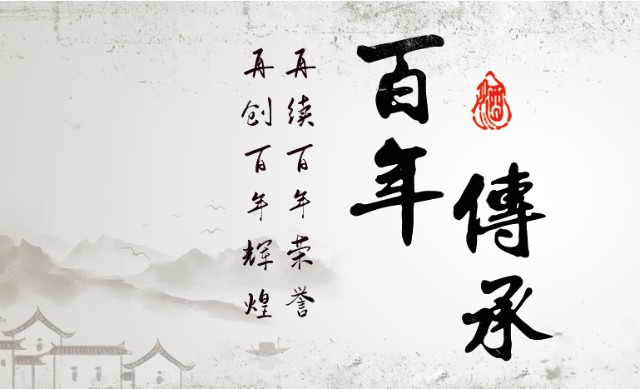 百年
傳承
酒
再续百年荣誉
再创百年辉煌